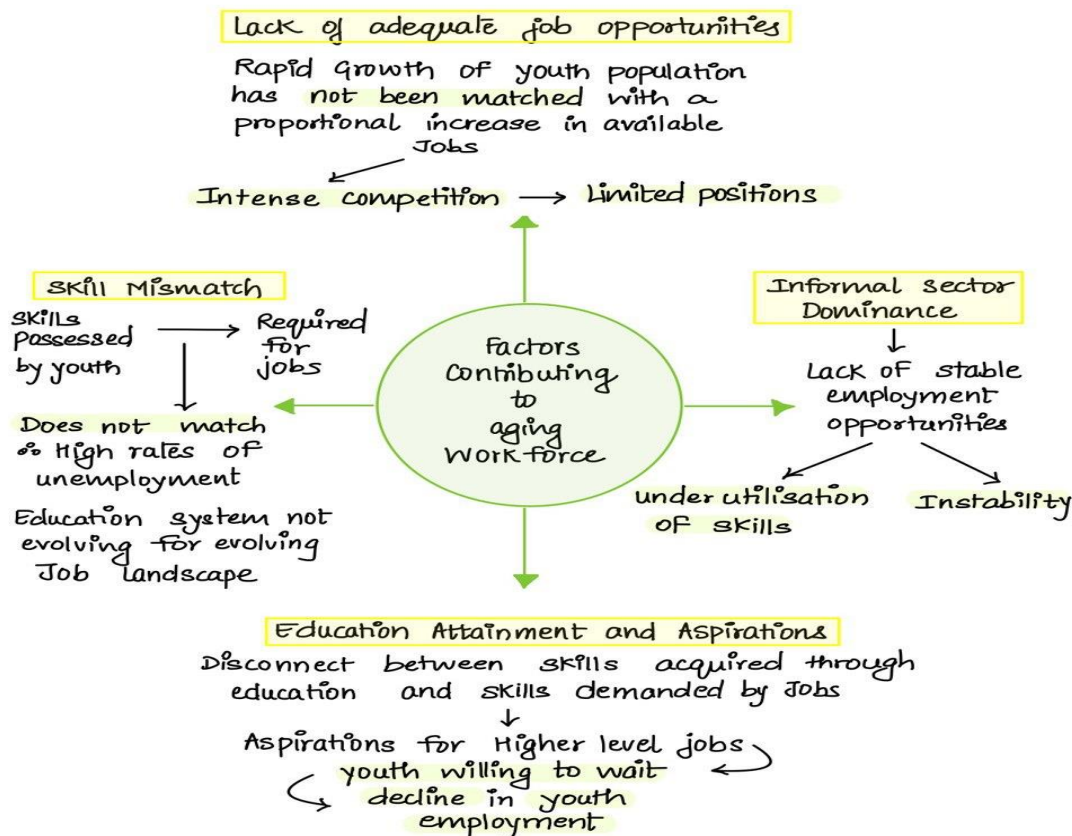 Lack of adequate job opportunities
Rapid Growth of youth population
has not been matched with a
proportional increase in available
Jobs
Intense competition → Limited positions
Skill Mismatch
Skills
Possessed
by youth
Required
for
jobs
Does not match
∴ High rates of
unemployment
Education system not
evolving for evolving
Job landscape
Factors
Contributing
to
aging
Workforce
Informal Sector
Dominance
Lack of stable
employment
opportunities
under utilisation
of skills
Instability
Education Attainment and Aspirations
Disconnect between skills acquired through
education and skills demanded by Jobs
Aspirations for Higher level jobs
youth willing to wait
decline in youth
employment